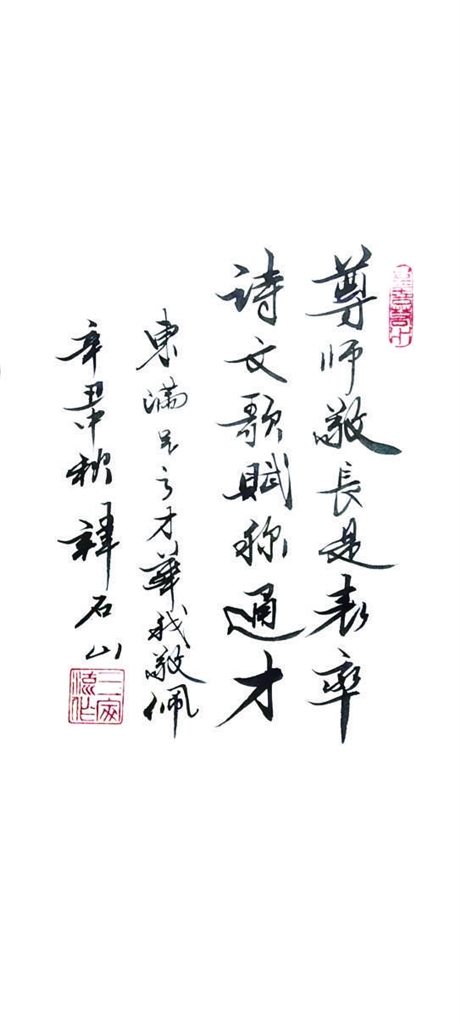 尊师敬长是表率
诗文歌赋称通才
東满兄之才華我敬佩
辛丑中秋祥石山